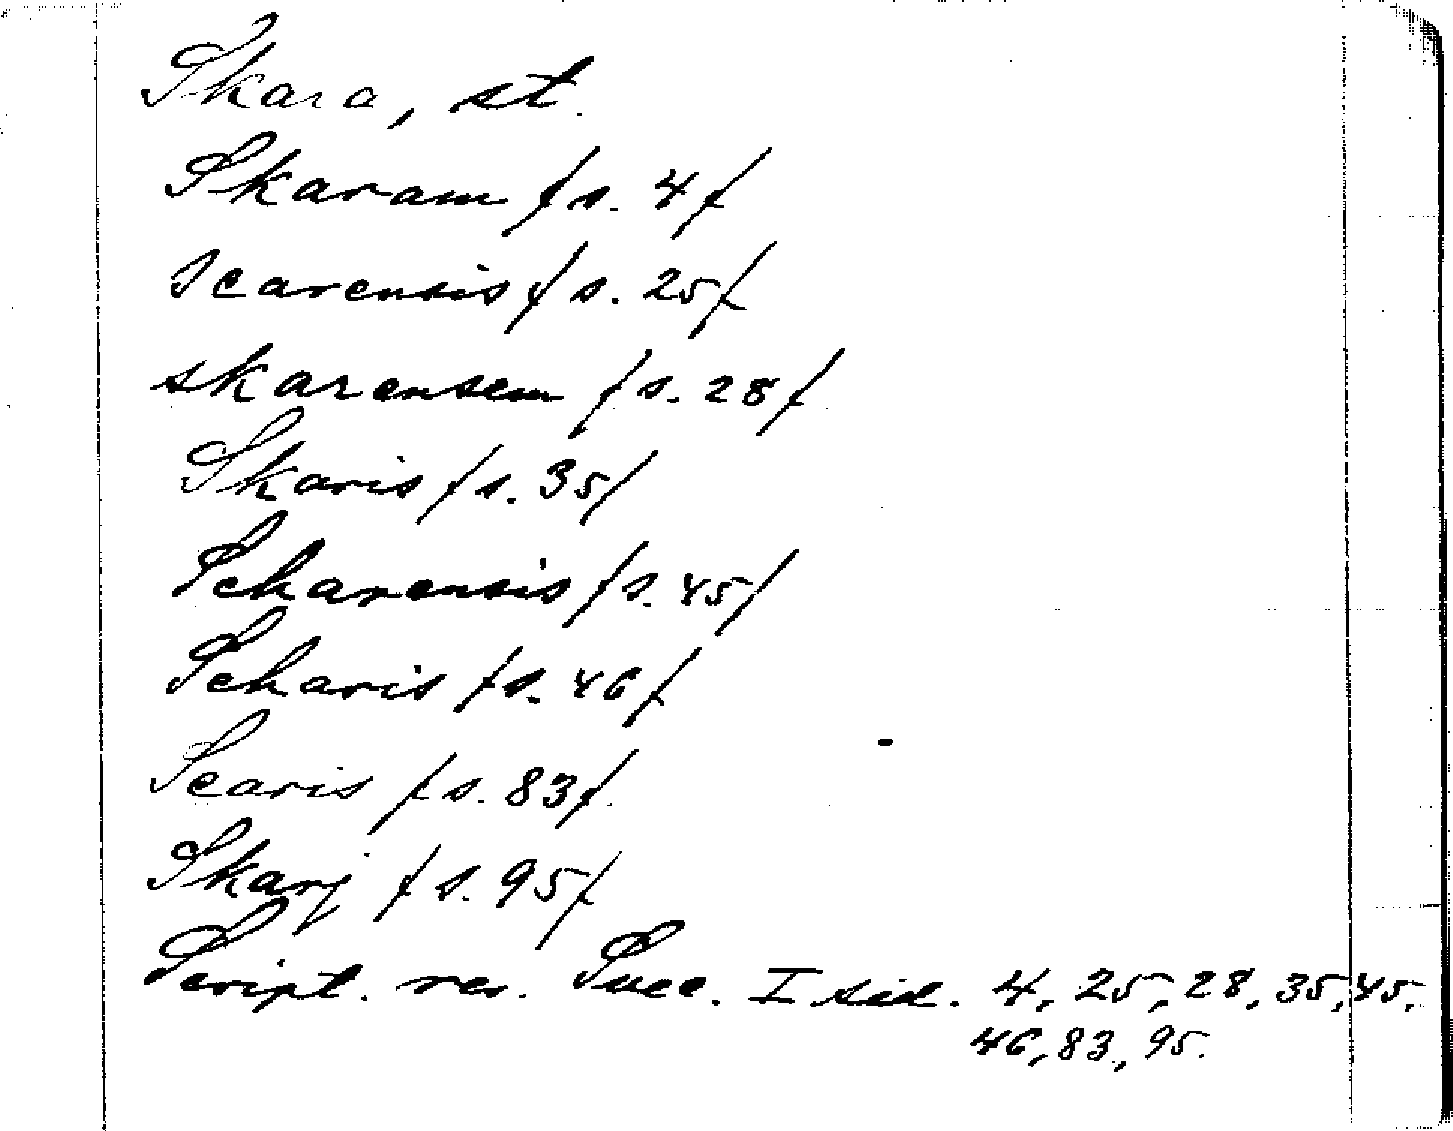 Skara, st.
Skaram /s. 4/
Scarensis /s. 25/
skarensem /s. 28/
Skaris /s. 35/
Scharensis /s. 45/
Scharis /s. 46/
Scaris /s. 83/.
Skarj /s. 95/
Script. rer. Suec. I sid. 4, 25, 28, 35, 45,
46, 83, 95.